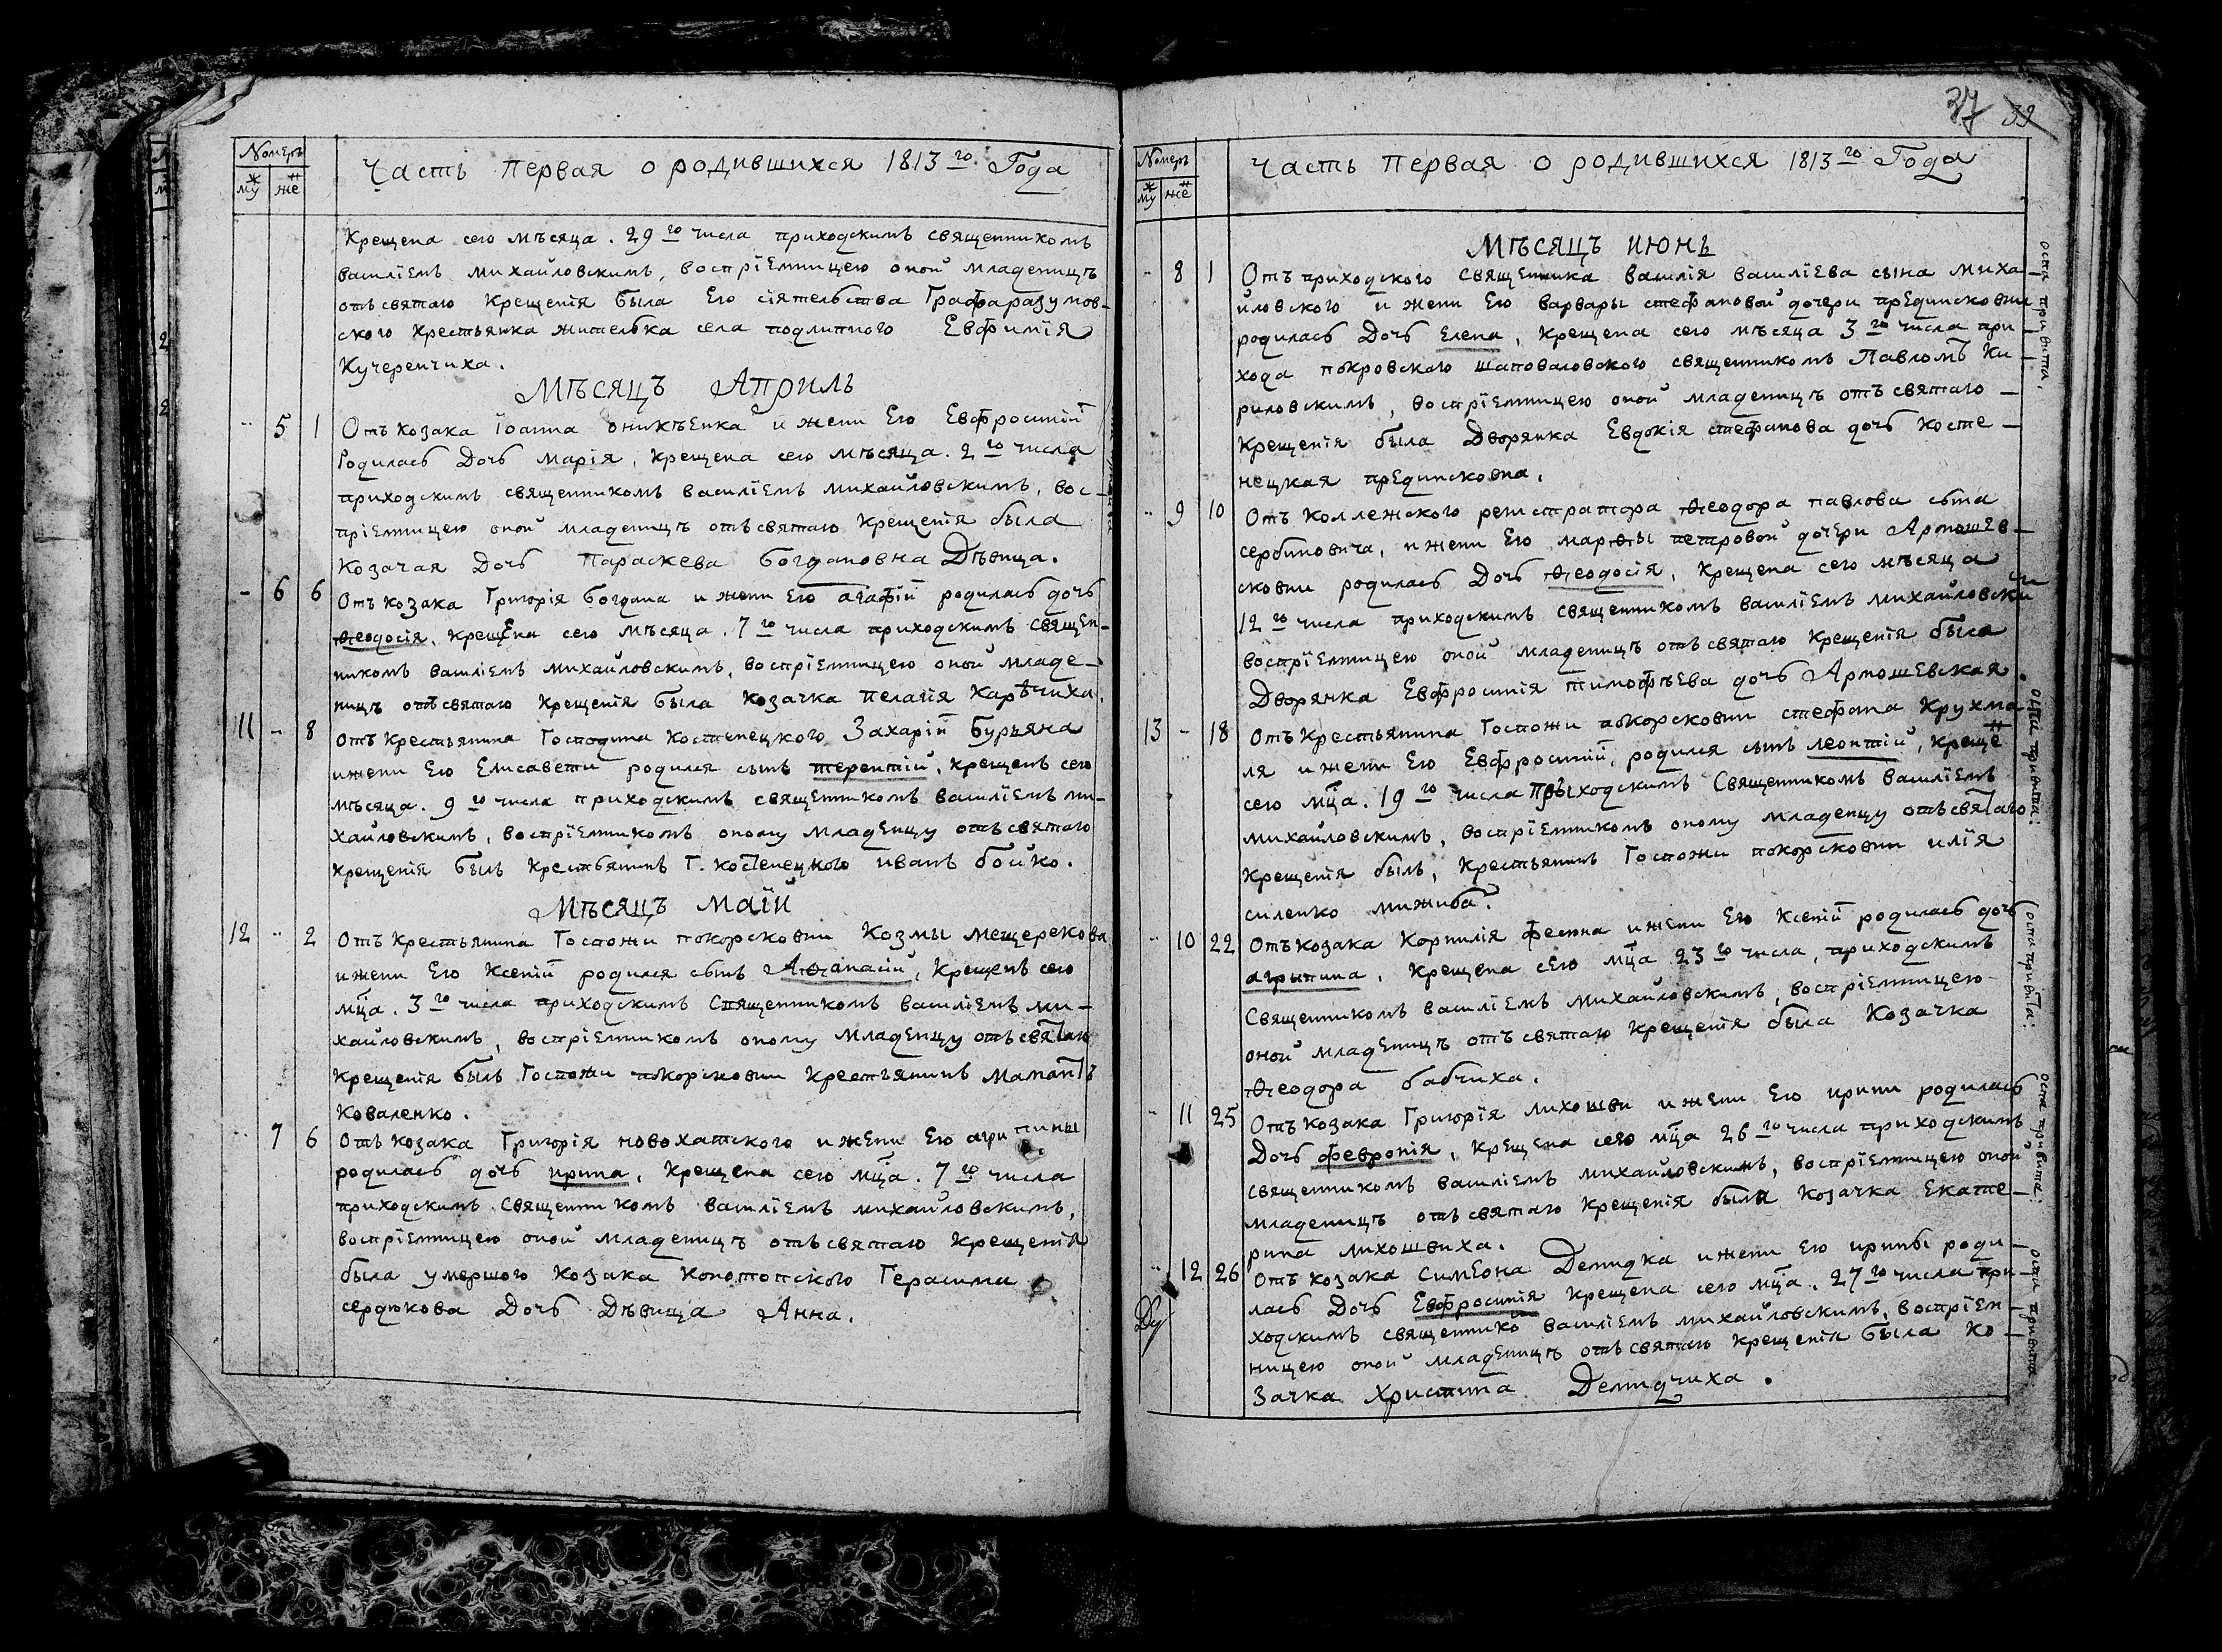 Номеръ
му
же
Часть первая о родившихся 1813го Года
Крещена сего мѣсяца. 29го числа приходскимъ священникомъ
василіемъ михайловскимъ, воспріемницею оной младеницѣ
отъ святаго Крещенія была Его сіятельства Графаразумов-
ского Крестьянка жителька села подлипного Евфимія
Кучеренчиха.
Мѣсяцъ Априль
5 1 Отъ козака Іоанна оникѣенка и жени Его Евфросиніи
Родилась Дочь марія, Крещена сего мѣсяца. 2го числа
приходскимъ священникомъ василіемъ михайловскимъ, вос-
пріемницею оной младеницѣ отъ святаго Крещенія была
Козачая Дочь Параскева Богдановна Дѣвица.
6 6 Отъ козака Григорія богдана и жени Его агафіи родилась дочь
ѳеодосія, крещена сего мѣсяца. 7го числа приходскимъ священ-
никомъ василіемъ михайловскимъ, воспріемницею оной младе-
ницѣ отъ святаго Крещенія была Козачка пелагія Карѣчиха.
11 - 8 Отъ Крестьянина Господина Костенецкого Захарій Бурьяна
и жени Его Елисавети родился сынъ терентій, Крещенъ сего
мѣсяца. 9го числа приходскимъ священникомъ василіемъ ми-
хайловскимъ, воспріемникомъ оному младенцу отъ святаго
крещенія былъ Крестьянинъ Г. Костенецкого иванъ бойко.
Мѣсяцъ маій
12 2 Отъ Крестьянина Госпожи покорсковни Козмы мещерекова
и жени Его Ксеніи родился сынъ Аѳанасій, Крещенъ сего
мца. 3го числа приходскимъ Священникомъ василіемъ ми-
хайловскимъ, воспріемникомъ оному младенцу отъ святаго
Крещенія былъ Госпожи покорсковни Крестьянинъ Мамантъ
Коваленко.
7 6 Отъ козака Григорія новохатского и жени Его агрипины
родилась дочь ирина, Крещена сего мца. 7го числа
приходскимъ Священникомъ василіемъ михайловскимъ,
воспріемницею оной младеницѣ отъ святаго Крещенія
была умершого Козака Конотопского Герасима
сердюкова Дочь Дѣвица Анна.
37 39
Номеръ
му
же
Часть Первая о родившихся 1813го Года
Мѣсяцъ июнь
8 1 Отъ приходского священника василія василіева сына Миха-
йловского и жени Его варвары стефановой дочери предински­овни
родилась Дочь Елена, Крещена сего мѣсяца 3го числа при-
хода покровского шаповаловского священникомъ Павломъ Ки-
риловскимъ, воспріемницею оной младеницѣ отъ святаго
Крещенія была Дворянка Евдокія стефанова дочь Косте-
нецкая прединсковна.
9 10 Отъ Коллежского регистратора ѳеодора павлова сына
сербиновича, и жени Его марѳы петровой дочери Армашев-
сковни родилась Дочь ѳеодосія, Крещена сего мѣсяца
12го числа приходскимъ священникомъ василіемъ михайловски
воспріемницею оной младеницѣ отъ святаго Крещенія была
Дворянка Евфросинія тимофѣева дочь Армошевская.
13 - 18 Отъ Крестьянина Госпожи покорсковни стефана Крухма-
ля и жени Его Евфросиніи, родился сынъ леонтій, Креще
сего мца. 19го числа приходскимъ Священникомъ василіемъ
михайловскимъ, воспріемникомъ оному младенцу отъ святаго
Крещенія былъ, Крестьянинъ Госпожи покорсковни илія
силенко
10 22 Отъ козака Корнилія фесюна и жени Его Ксеніи родилась дочь
агрыпина, Крещена сего мца 23го числа, приходскимъ
Священникомъ василіемъ михайловскимъ, воспріемницею
оной младеницѣ отъ святаго Крещенія была Козачка
Ѳеодора бабчиха.
11 25 Отъ козака Григорія лихошви и жени Его ирини родилась
Дочь февронія, Крещена сего мца 26го числа приходскимъ
священникомъ василіемъ михайловскимъ, воспріемницею оной
младеницѣ отъ святаго Крещенія была Козачка Екате-
рина лихошвиха.
12 26 Отъ козака Симеона Демидка и жени Его ирины роди-
лась Дочь Евфросинія Крещена сего мца. 27го числа при-
ходскимъ священнико василіемъ михайловскимъ, воспріем-
ницею оной младеницѣ отъ святаго Крещенія была Ко-
зачка Христина Демидчиха.
оспа привита.
оспа привита:
оспа привита:
оспа привита:
оспа привита